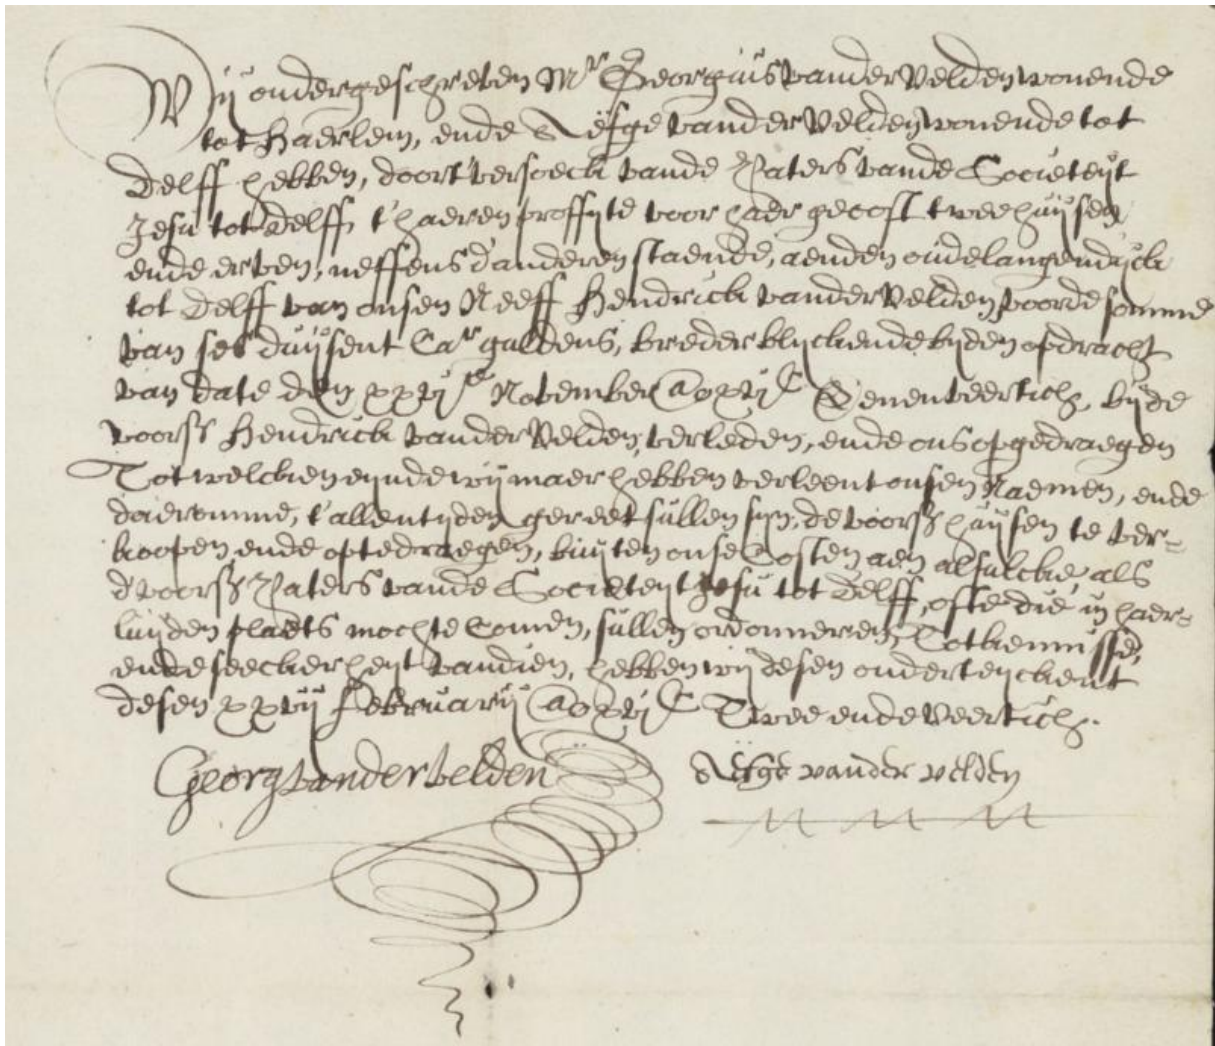 Wij ondergeschreven Mr Georgius vander Velden wonende
tot Haerlem, ende Aefge vander Velden wonende tot
Delff hebben, doort versoeck vande Paters vande Societeijt
Jesu tot Delff, t'haeren proffijte voor haer gecoft twee huijsen
ende erven, neffens d'anderen staende, aenden oudelangendijck
tot Delff van onsen Neeff Hendrick vander Velden, voor de somme
van ses duijsent Car guldens, breder blijckende bijden opdracht
van date den xxvje November Ao xvjC Eenenveertich, bijde
voorss Hendrick vander Velden, verleden, ende ons opgedraegen
Tot welcken eijnde wij maer hebben verleent onsen Naemen, ende
daeromme, t'allen tijden gereet sullen sijn, de voorss huijsen te ver=
koopen ende op te draegen, buijten onse Costen aen alsulcke, als
d'voorss Paters vande Societeijt Jesu tot Delff, ofte die in haer=
luijden plaets mochte Comen, sullen ordonneren, Tot kennisse,
ende seeckerheijt van dien, hebben wij desen onderteijckent
desen xxvij Februarij Ao xvjC Twee ende Veertich.
Georg vander velden Aefge vander velden